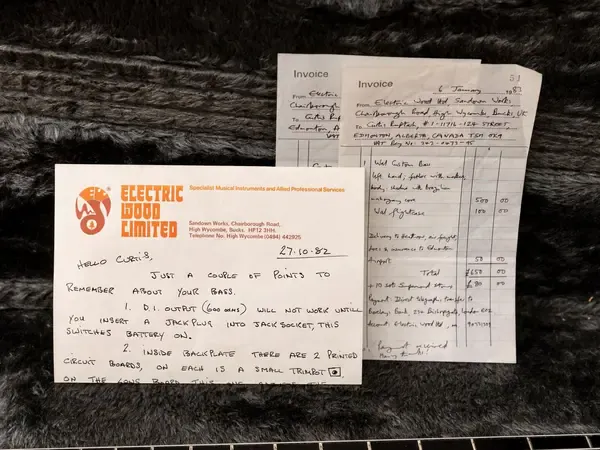 ELECTRIC
WOOD
LIMITED
Specialist Musical Instruments and Allied Professional Services
Sandown Works, Chairborough Road,
High Wycombe, Bucks. HP12 3HH.
Telephone No. High Wycombe (0494) 442925
27·10·82
HELLO CURTIS,
JUST A COUPLE OF POINTS TO
REMEMBER ABOUT YOUR BASS.
1. D.I. OUTPUT (600 OHMS) WILL NOT WORK UNTIL
YOU INSERT A JACKPLUG INTO JACK SOCKET, THIS
SWITCHES BATTERY ON.
2. INSIDE BACKPLATE THERE ARE 2 PRINTED
CIRCUIT BOARDS, ON EACH IS A SMALL TRIMPOT
ON THE LONG BOARD THIS
Invoice
From Electric
Chairborough
To Curtis
Edmonton, A
VAT
Invoice
6 January 1983
From Electric Wood Ltd, Sandown Works
Chairborough Road, High Wycombe, Bucks, UK
To Curtis
EDMONTON, ALBERTA, CANADA
VAT Reg No.
1 Wal Custom Bass
left hand, facing with
body,
mahogany core 500 00
Wal flightcase 100 00
Delivery to Heathrow, air freight,
& insurance to Edmonton
Airport 50 00
Total £650 00
Payment: Direct Telegraphic transfer to
Barclays Bank,
Account: Electric Wood Ltd,
Payment received
Many thanks!